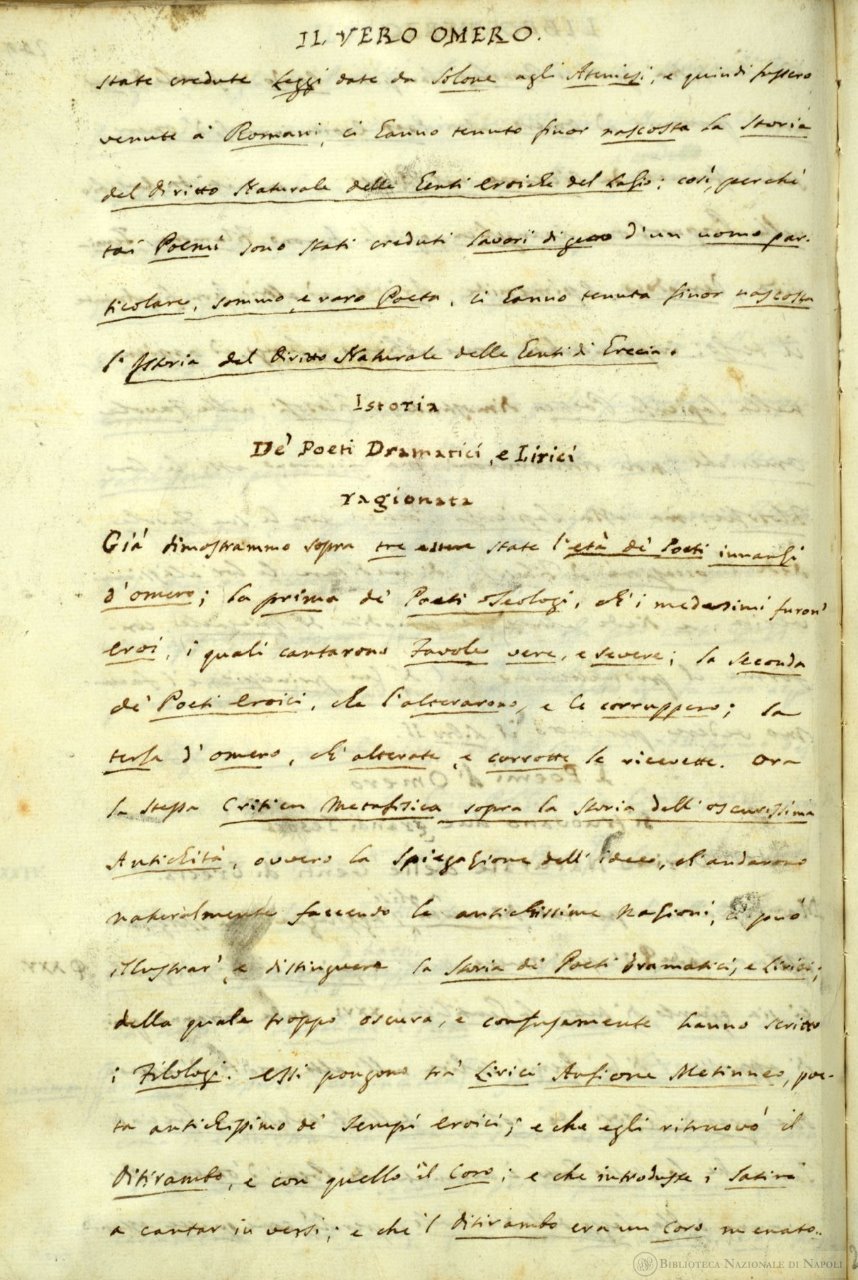 IL VERO OMERO.
state credute Leggi date da Solone agli Ateniesi, e quindi fussero
venute a' Romani, ci hanno tenuto finor nascosta la Storia
del Diritto Naturale delle Genti Eroiche del Lazio; così, perchè
tai Poemi sono stati creduti lavori di getto d'un uomo par-
ticolare, sommo, e raro Poeta, ci hanno tenuta finor nascosta
l'Istoria del Diritto Naturale delle Genti di Grecia.
Istoria
De' Poeti Dramatici, e Lirici
ragionata
Già dimostrammo sopra tre essere state l'età de' Poeti innanzi
d'Omero; la prima de' Poeti Teologi, ch'i medesimi furon'
Eroi, i quali cantarono Favole vere, e severe; la seconda
de' Poeti Eroici, che l'alterarono, e le corruppero; la
terza d'Omero, ch'alterate, e corrotte le ricevette. Ora
la stessa Critica Metafisica sopra la Storia dell'oscurissima
Antichità, ovvero la Spiegazione dell'idee, ch'andarono
naturalmente faccendo le antichissime Nazioni, ci può
illustrar', e distinguere la Storia de' Poeti Dramatici, e Lirici;
della quale troppo oscura, e confusamente hanno scritto
i Filologi. Essi pongono tra' Lirici Anfione Metinneo, poe-
ta antichissimo de' tempi eroici; e che egli ritruovò il
Ditirambo, e con quello il Coro; e che introdusse i Satiri
a cantar in versi; e che 'l Ditirambo era un Coro menato..
BIBLIOTECA NAZIONALE DI NAPOLI